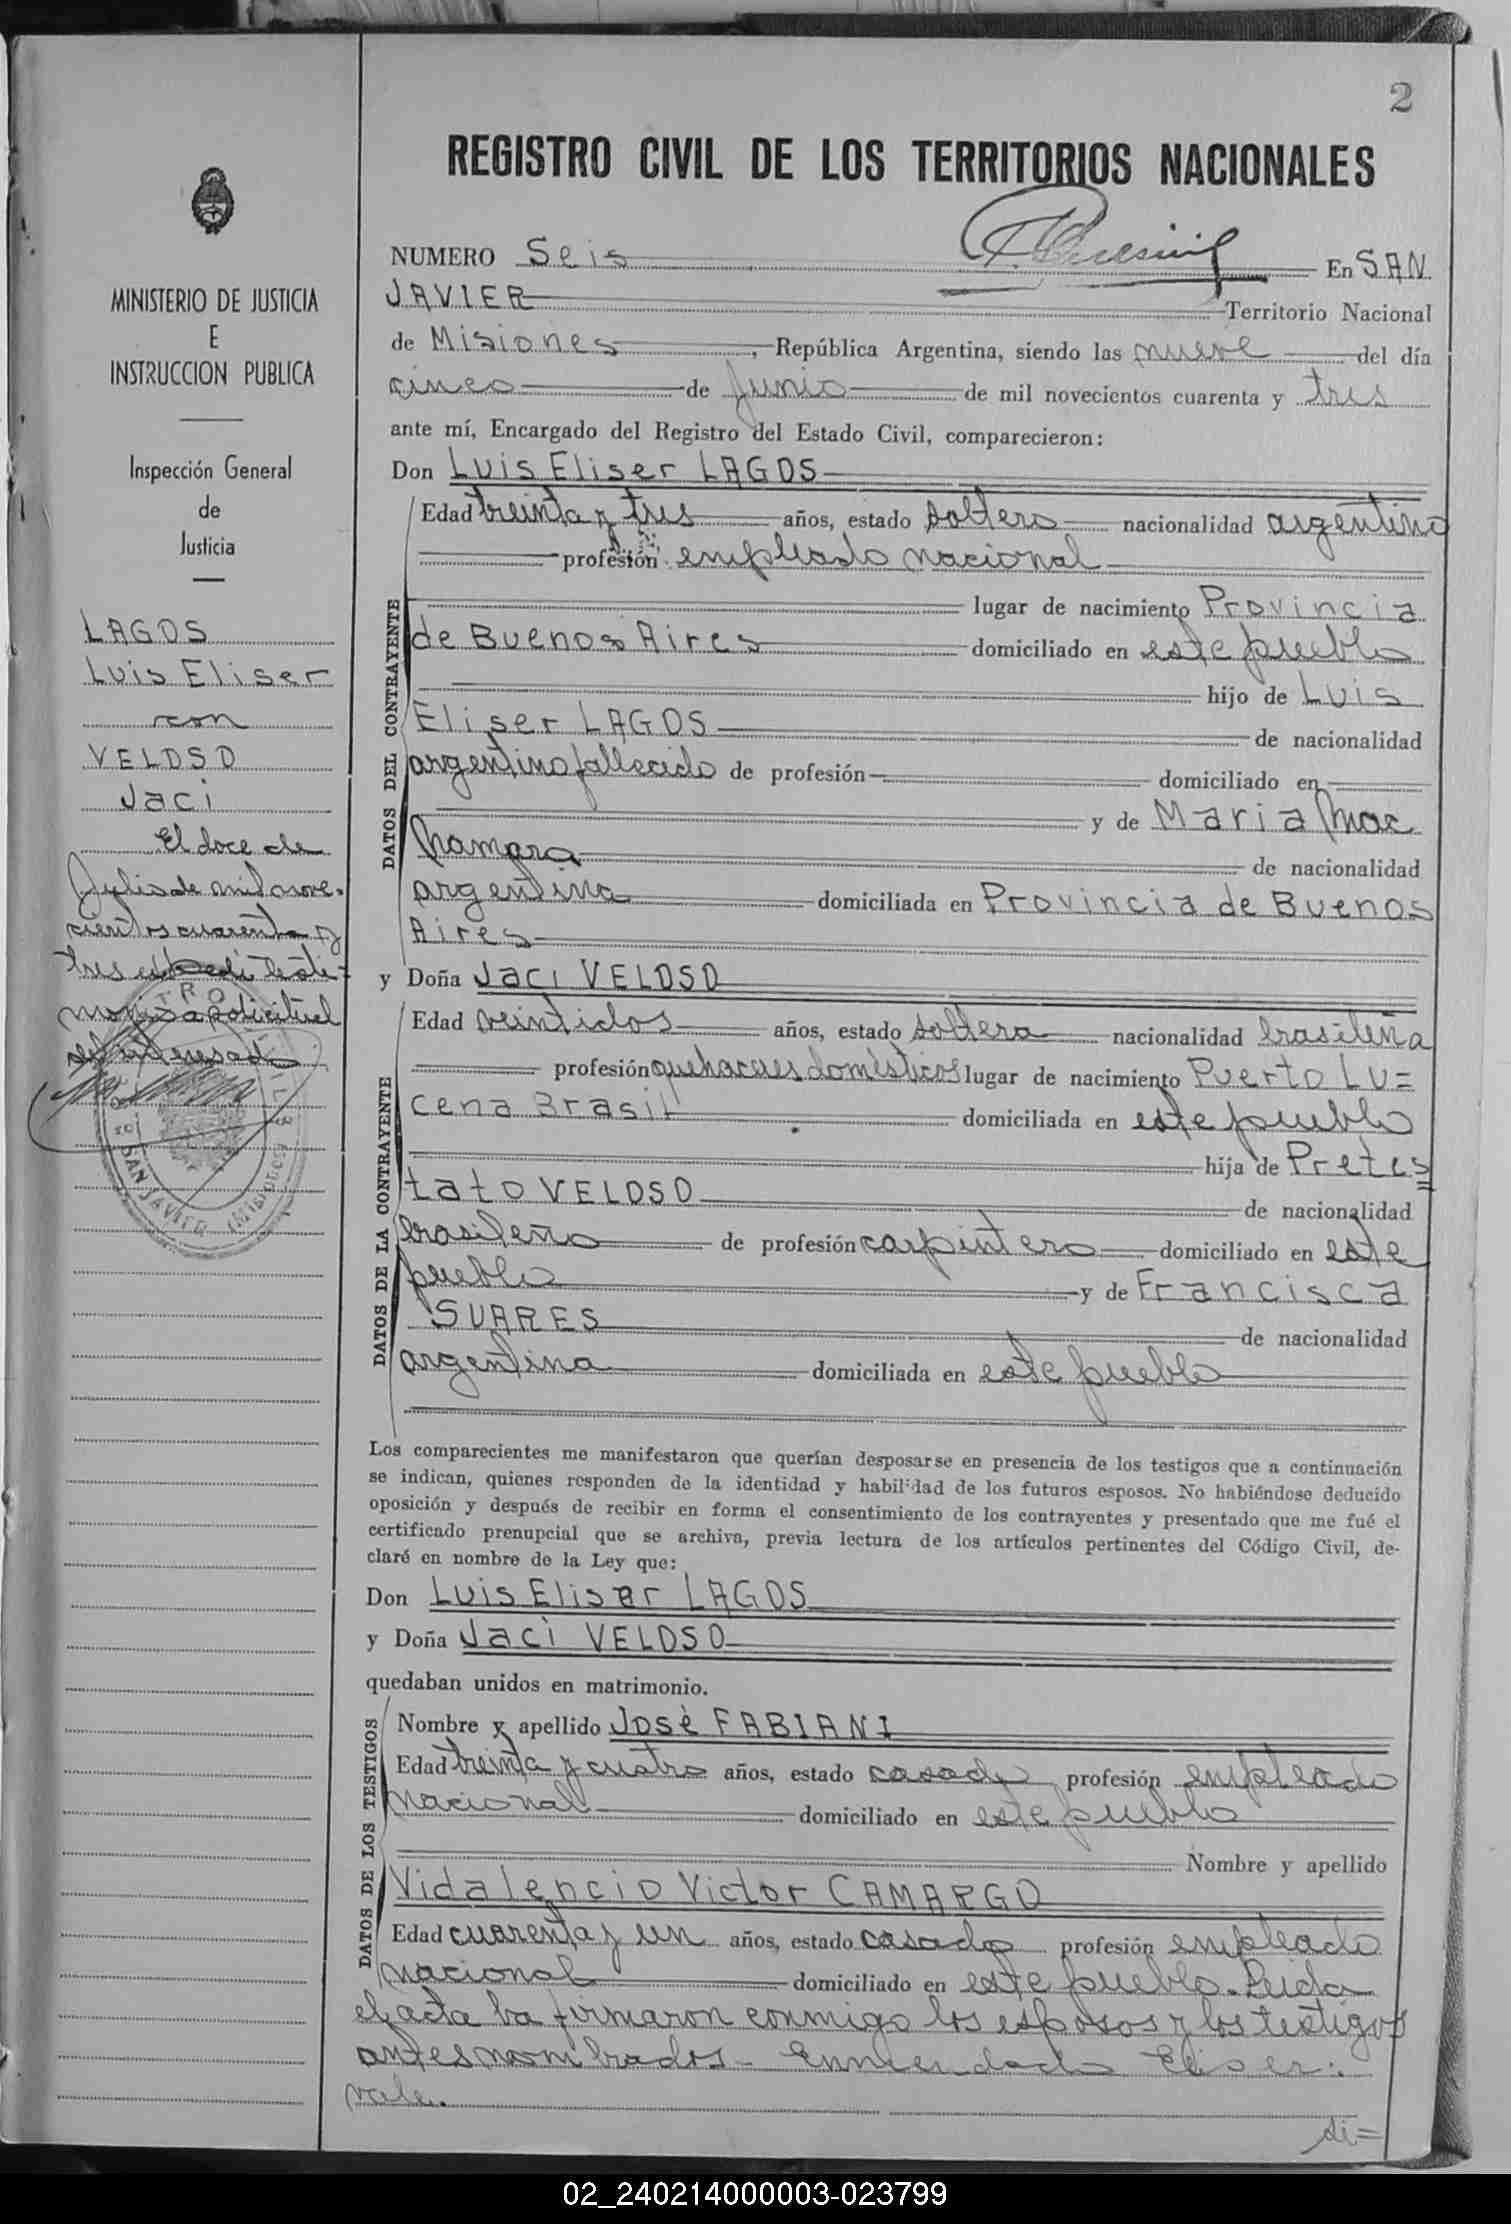 2
REGISTRO CIVIL DE LOS TERRITORIOS NACIONALES
NUMERO Seis En SAN
JAVIER Territorio Nacional
de Misiones, República Argentina, siendo las nueve del día
cinco de Junio de mil novecientos cuarenta y tres
ante mí, Encargado del Registro del Estado Civil, comparecieron:
Don Luis Eliser LAGOS
Edad treinta y tres años, estado soltero nacionalidad argentino
profesión empleado nacional
lugar de nacimiento Provincia
de Buenos Aires domiciliado en este pueblo
hijo de Luis
Eliser LAGOS de nacionalidad
argentino fallecido de profesión domiciliado en
y de Maria Mac
Namara de nacionalidad
argentina domiciliada en Provincia de Buenos
Aires
y Doña Jaci VELOSO
Edad veintidos años, estado soltera nacionalidad brasileña
profesión quehaceres domésticos lugar de nacimiento Puerto Lu=
cena Brasil domiciliada en este pueblo
hija de Pretes
tato VELOSO de nacionalidad
brasileño de profesión carpintero domiciliado en este
pueblo y de Francisca
SUARES de nacionalidad
argentina domiciliada en este pueblo
DATOS DEL CONTRAYENTE
DATOS DE LA CONTRAYENTE
Los comparecientes me manifestaron que querían desposarse en presencia de los testigos que a continuación
se indican, quienes responden de la identidad y habilidad de los futuros esposos. No habiéndose deducido
oposición y después de recibir en forma el consentimiento de los contrayentes y presentado que me fué el
certificado prenupcial que se archiva, previa lectura de los artículos pertinentes del Código Civil, de-
claré en nombre de la Ley que:
Don Luis Eliser LAGOS
y Doña Jaci VELOSO
quedaban unidos en matrimonio.
Nombre y apellido José FABIANI
Edad treinta y cuatro años, estado casado profesión empleado
nacional domiciliado en este pueblo
Nombre y apellido
Vidalencio Victor CAMARGO
Edad cuarenta y un años, estado casado profesión empleado
nacional domiciliado en este pueblo. Leida
el acta la firmaron conmigo los esposos y los testigos
antes nombrados - Enmendado Eliser:
vale.
di=
DATOS DE LOS TESTIGOS
MINISTERIO DE JUSTICIA
E
INSTRUCCION PUBLICA
Inspección General
de
Justicia
LAGOS
Luis Eliser
con
VELOSO
Jaci
El doce de
Julio de mil nove-
cientos cuarenta y
tres expedi testi-
monio a solicitud
del interesado
SAN JAVIER (Misiones)
02_240214000003-023799